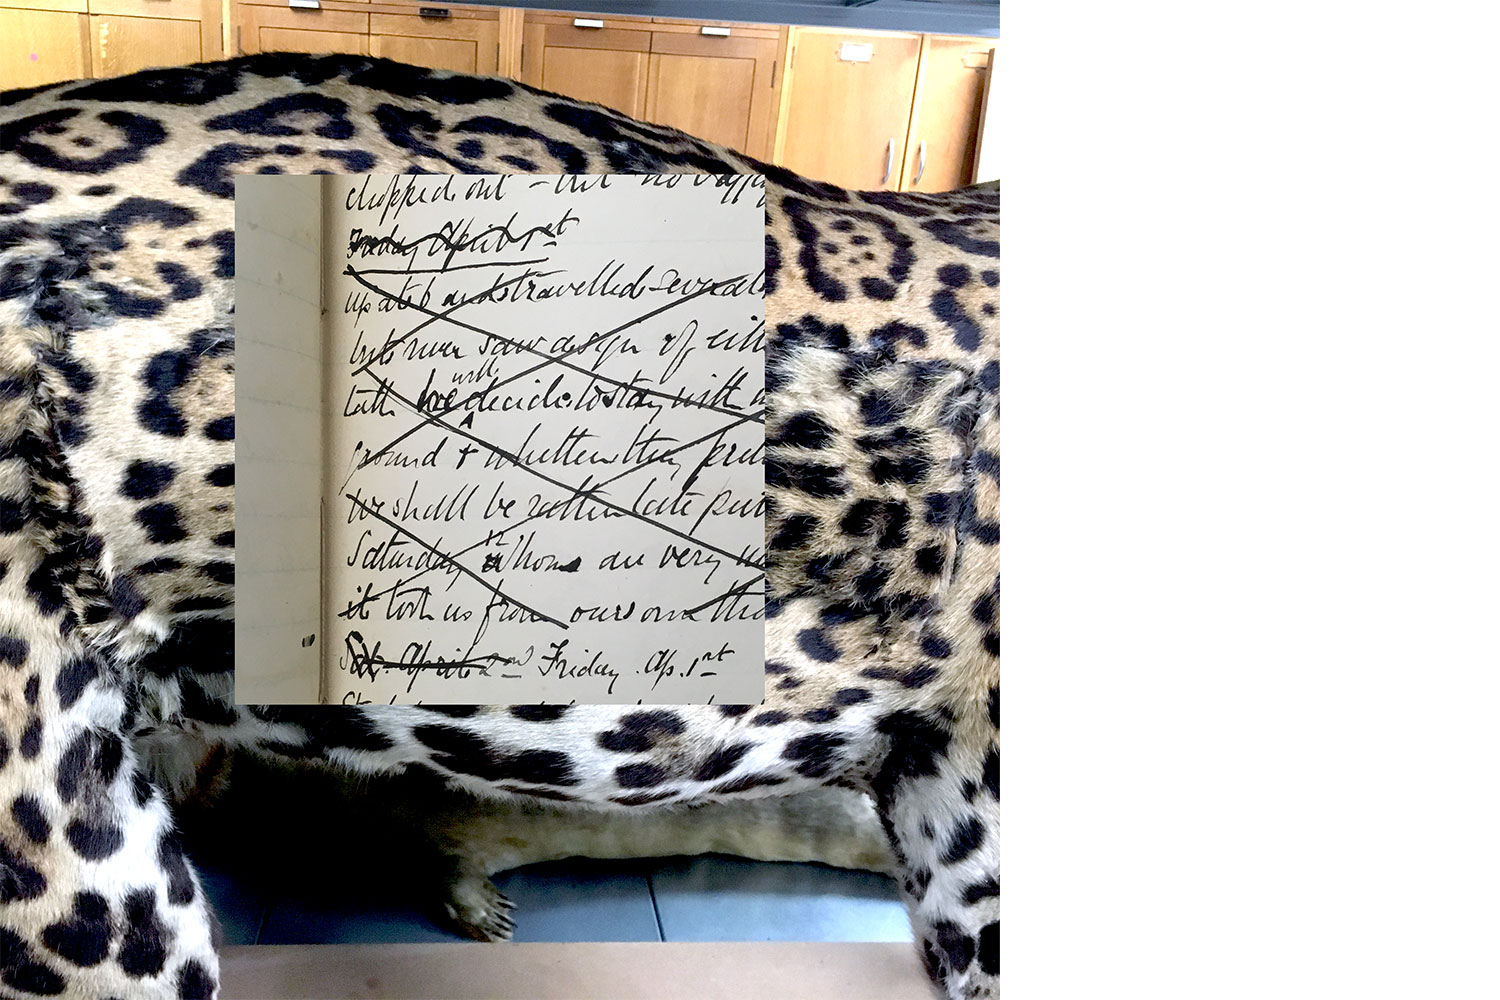 chopped out - but no
Friday April 1st
up at 6 and travelled several
but never saw a sign of
will
tell he decide to stay with
ground + whether they
we shall be rather late
12
Saturday hours are very
it took us from our own
Sat. April 2nd Friday. Ap. 1st